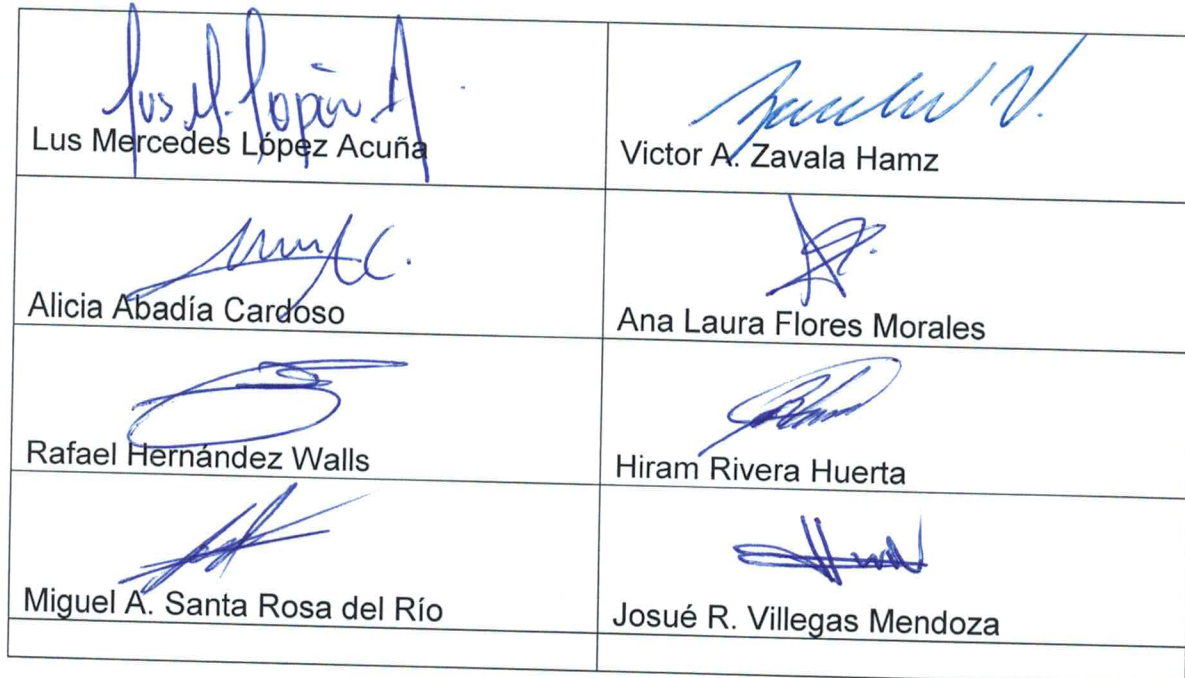 Lus M. López A.
Lus Mercedes López Acuña
Victor A. Zavala Hamz
Alicia Abadía Cardoso
Ana Laura Flores Morales
Rafael Hernández Walls
Hiram Rivera Huerta
Miguel A. Santa Rosa del Río
Josué R. Villegas Mendoza